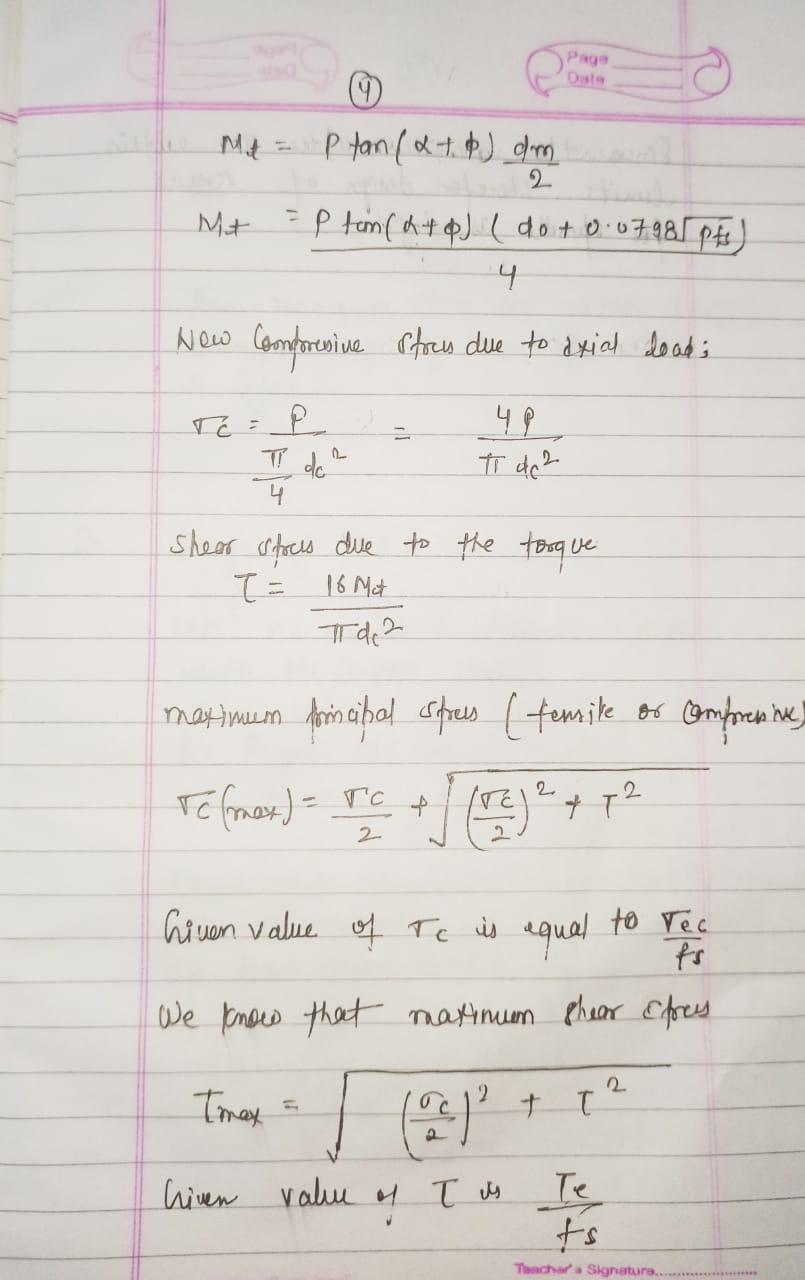 Page
Date
④
Mt = P tan(α+φ) dm/2
Mt = P tan(α+φ) (do + 0.0798√Pfs)/4
New Compressive stress due to axial load;
σc = P/(π/4 dc²) = 4P/π dc²
Shear stress due to the torque
τ = 16 Mt/π dc²
maximum principal stress (tensile or compressive)
σc(max) = σc/2 + √((σc/2)² + τ²)
Given value of σc is equal to σec/fs
We know that maximum shear stress
τmax = √((σc/2)² + τ²)
Given value of τ is τe/fs
Teacher's Signature..................